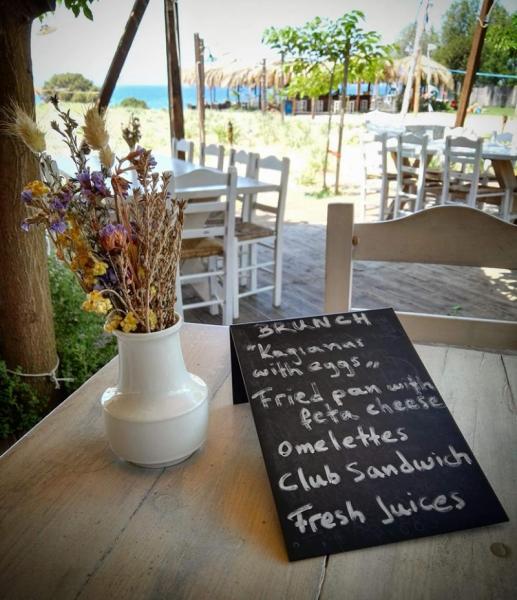 BRUNCH
"Kagianas
with eggs„
Fried pan with
feta cheese
Omelettes
Club Sandwich
Fresh Juices